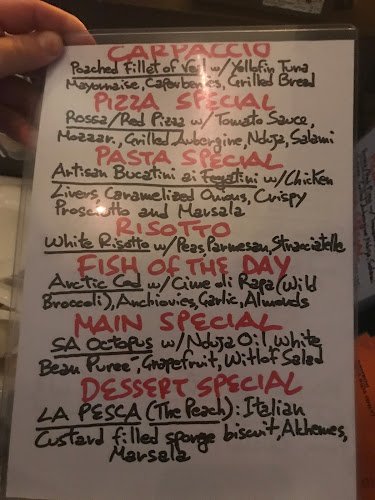 CARPACCIO
Poached Fillet of Veal w/ Yellofin Tuna
Mayornaise, Caperberries, Grilled Bread
PIZZA SPECIAL
Rossa/Red Pizza w/ Tomato Sauce,
Mozzar., Grilled Aubergine, Nduja, Salami
PASTA SPECIAL
Artisan Bucatini ai Fegatini w/ Chicken
Livers, Caramelized Onions, Crispy
Proscuitto and Marsala
RISOTTO
White Risotto w/ Peas, Parmesan, Stracciatelle
FISH OF THE DAY
Arctic Cod w/ Cime di Rapa (Wild
Broccoli), Anchiovies, Garlic, Almonds
MAIN SPECIAL
SA Octopus w/ Nduja Oil, White
Bean Puree, Grapefruit, Witlof Salad
DESSERT SPECIAL
LA PESCA (The Peach): Italian
Custard filled sponge biscuit, Alkhemes,
Marsala